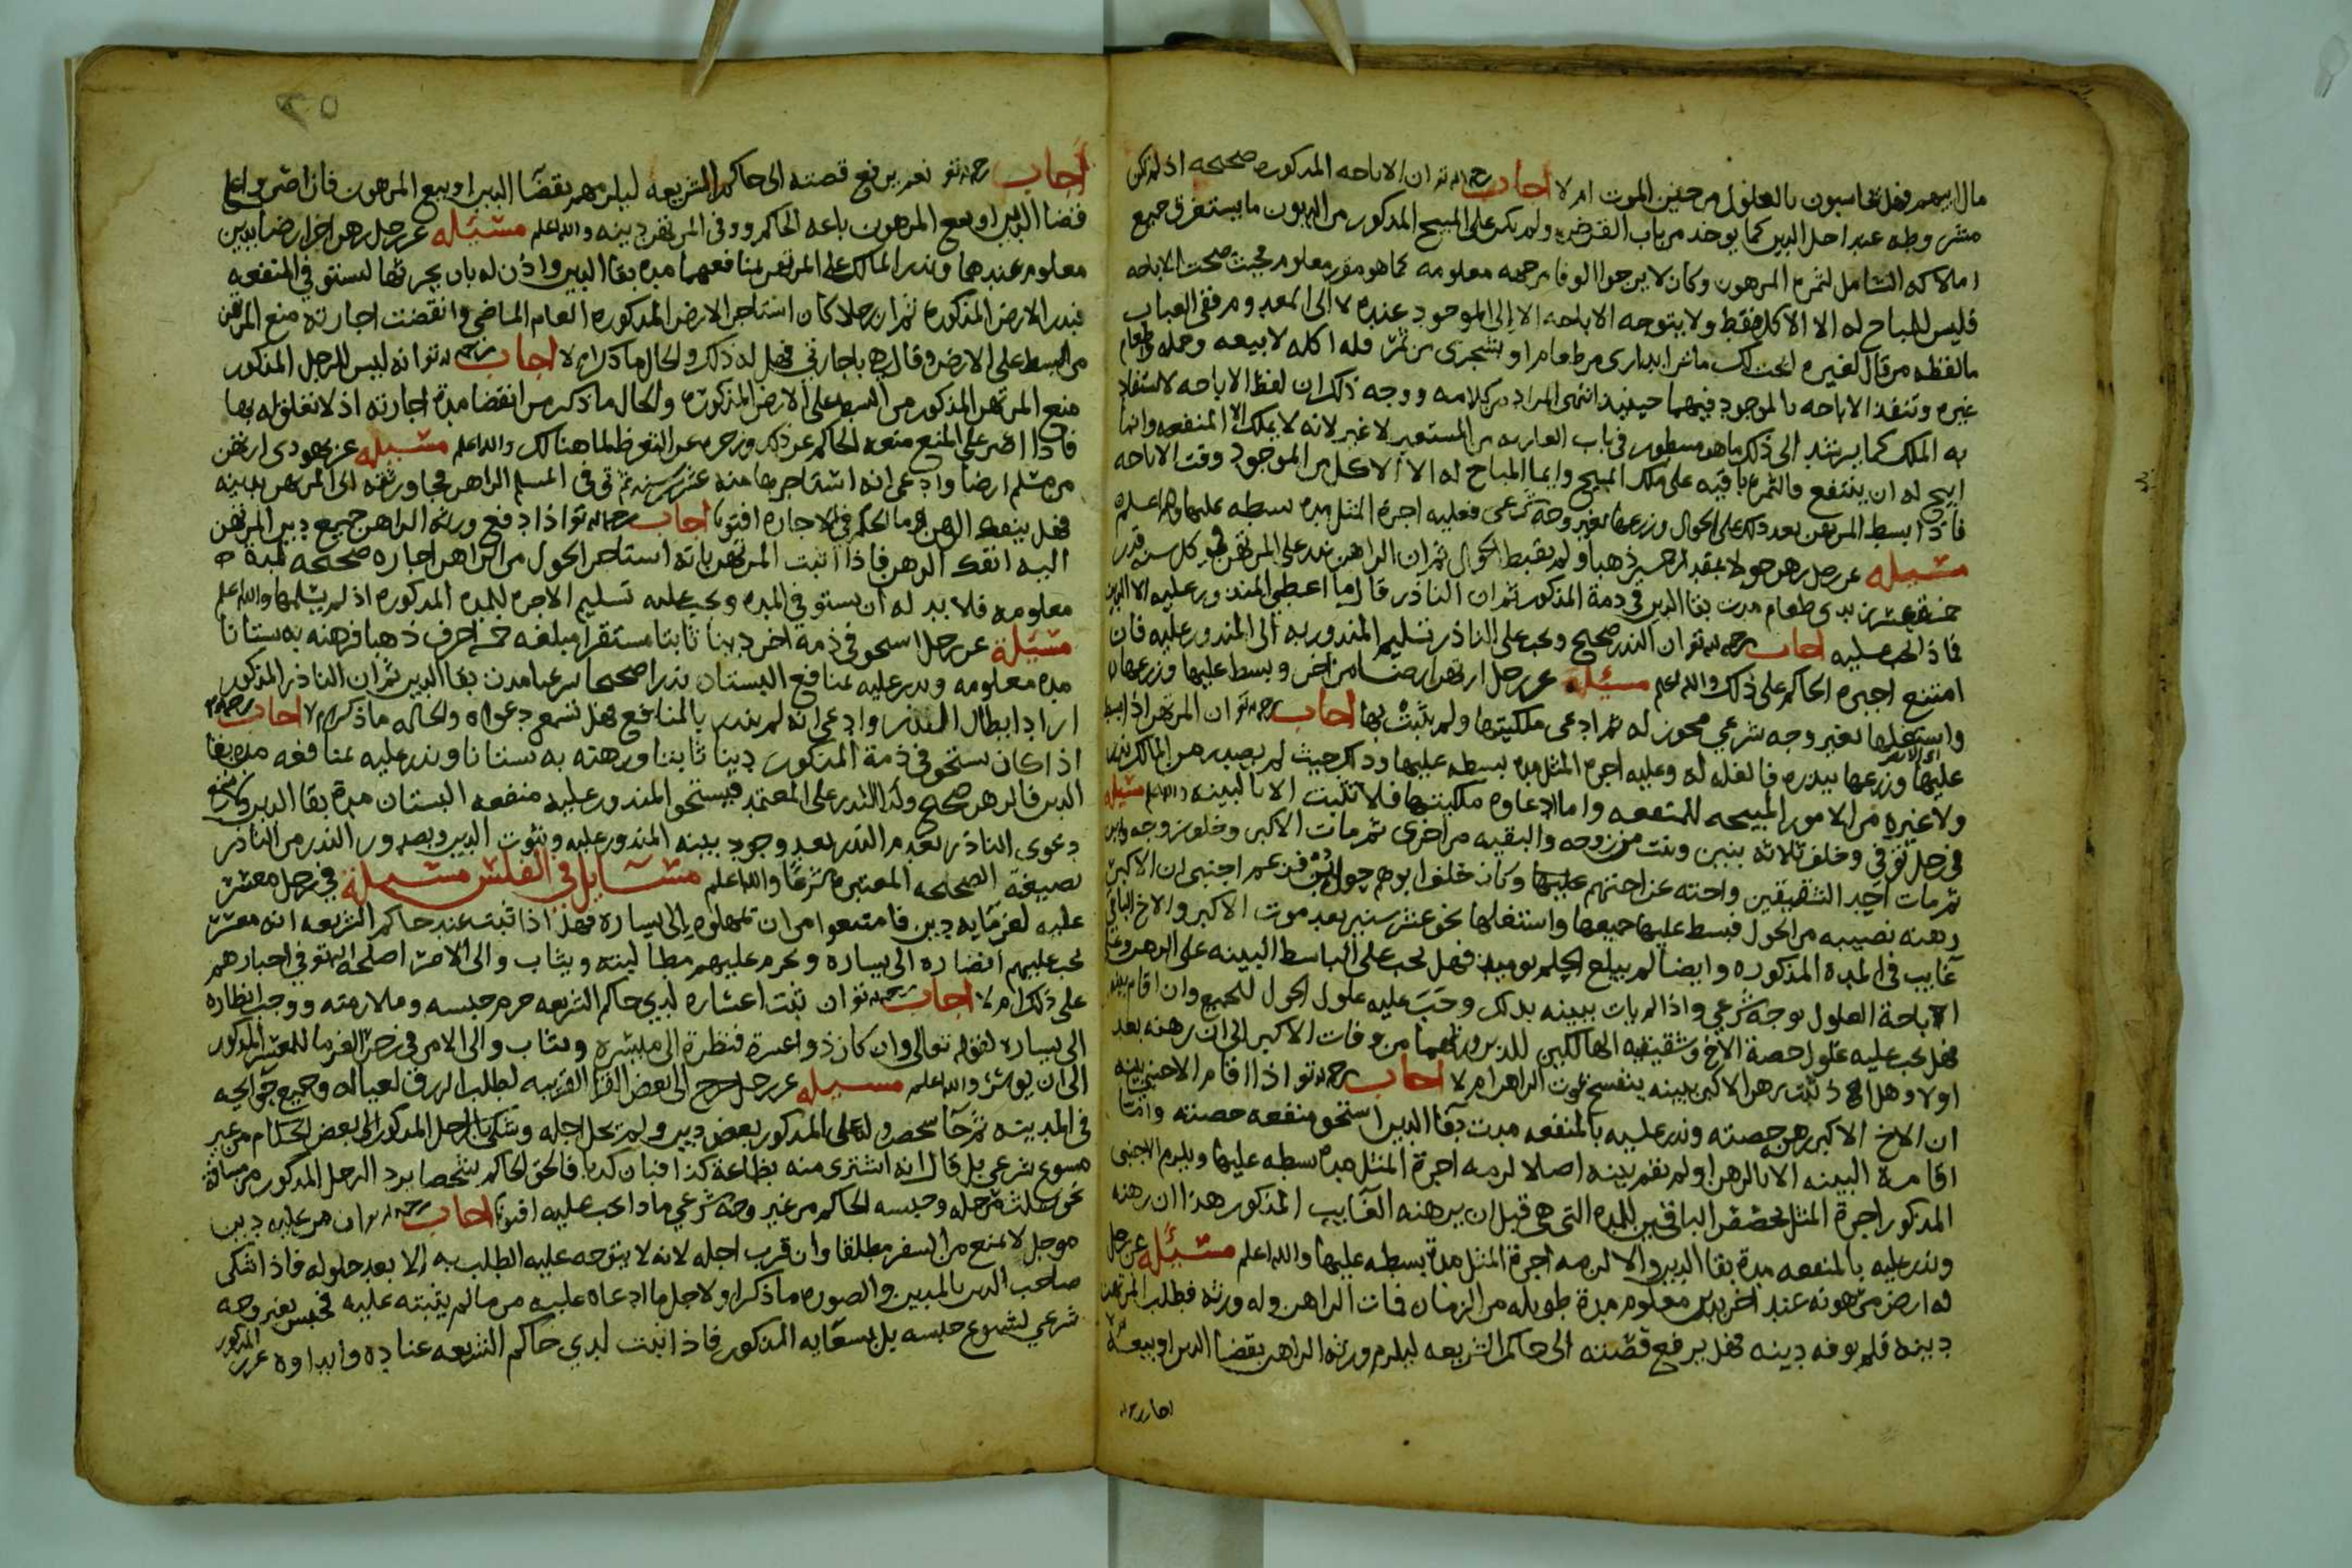 مال ابيهم فهل يحاسبون بالعلول من حين الموت ام لا اجاب رحمه الله تعالى ان الاباحه المذكوره صحيحه اذ لم تكن
مشروطه عند اهل الدين كما يوخذ من باب القرض ولم يكن على المبيح المذكور من الديون ما يستغرق جميع
املاكه الشامل لثمره المرهون وكان لا يرجوا الوفا من جهه معلومه كما هو مقرر معلوم فحيث صحت الاباحه
فليس للمباح له الا الاكل فقط ولا يتوجه الاباحه الا الى الموجود عنده لا الى المعدوم ففي العباب
ما لفظه من قال لغيره ابحت لك ما في داري من طعام او شجرتي من ثمر فله اكله لا بيعه وحمله واطعام
غيره وتنفذ الاباحه بالموجود فيهما حينيذ انتهى المراد من كلامه ووجه ذلك ان لفظ الاباحه لا يستفاد
به الملك كما يرشد الى ذلك ما هو مسطور في باب العاريه من المستعير لا غير لانه لا يملك المنفعه وانما
ابيح له ان ينتفع والثمره باقيه على ملك المبيح وانما المباح له الا الاكل من الموجود وقت الاباحه
فاذا بسط المرتهن بعد ذلك على الحول وزرعها بغير وجه شرعي فعليه اجرة المثل مدة بسطه عليها والله اعلم
مسئله عن رجل رهن حولا بعقد خمسين ذهبا ولم يقبض الحول ثم ان الراهن نذر على المرتهن في كل سنه قدر
خمسة عشر زبدي طعام مدت بقا الدين في ذمة المذكور ثم ان الناذر قال ما اعطي المنذور عليه الا الدين
فماذا يجب عليه اجاب رحمه الله تعالى ان النذر صحيح ويجب على الناذر تسليم المنذور به الى المنذور عليه فان
امتنع اجبره الحاكم على ذلك والله اعلم مسئلة عن رجل ارتهن ارضا من اخر وبسط عليها وزرعها
واستغلها بغير وجه شرعي مجوز له ثم ادعى ملكيتها ولم يثبت بها اجاب رحمه الله تعالى ان المرتهن اذا بسط
عليها وزرعها ببذره فالغله له وعليه اجرة المثل مدة بسطه عليها وذلك حيث لم يصدر من المالك نذر
ولا غيره من الامور المبيحه للمنفعه واما ادعاوه ملكيتها فلا تثبت الا بالبينه والله اعلم مسئله
في رجل توفي وخلف ثلاثه بنين وبنت من زوجه والبقيه من اخرى ثم مات الاكبر وخلف زوجه
ثم مات احد الشقيقين واخته عن اختهم عليها وكان خلف ابوهم حول عمر اجنبي ان الاكبر
رهنه نصيبه من الحول فبسط عليها جميعها واستغلها نحو عشر سنين بعد موت الاكبر والاخ الباقي
غايب في المدة المذكوره وايضا لم يبلغ الحلم يوميذ فهل يجب على الباسط البينه على الرهن وعلى
الاباحة العلول بوجه شرعي واذا لم يات ببينه بذلك وجب عليه علول الحول للجميع وان اقام بينه
فهل يجب عليه علول حصة الاخ وشقيقه الهالكين للذين ورثهما من وفات الاكبر الى ان رهنه بعد
اولا وهل اذا ثبت رهن الاكبر ببينه ينفسخ بموت الراهن ام لا اجاب رحمه الله تعالى اذا اقام الاجنبي بينه
ان الاخ الاكبر رهن حصته ونذر عليه بالمنفعه مدت بقا الدين استحق منفعه حصته واما
اقامة البينه الا بالرهن او لم تقم بينه اصلا لزمه اجرة المثل مدة بسطه عليها ويلزم الاجنبي
المذكور اجرة المثل لحصة الباقين للمدة التي هي قبل ان يرهنه الغايب المذكور هذا ان رهنه
ونذر عليه بالمنفعه مدة بقا الدين والا لزمه اجرة المثل مدة بسطه عليها والله اعلم مسئله عن رجل
له ارض مرهونه عند اخر بدين معلوم مدة طويله من الزمان فمات الراهن وله ورثه فطلب المرتهن
دينه فلم يوفه دينه فهل يرفع قصته الى حاكم الشريعه ليلزم ورثه الراهن بقضا الدين او بيعه
اجاب رحمه الله
اجاب رحمه الله تعالى نعم يرفع قصته الى حاكم الشريعه ليلزمهم بقضا الدين او بيع المرهون فان اصر على
قضا الدين او بيع المرهون باعه الحاكم ووفى المرتهن دينه والله اعلم مسئله عن رجل رهن اخر ارضا بدين
معلوم عندهما ونذر المالك على المرتهن بمنافعهما مدة بقا الدين واذن له بان يحرثها ليستوفي المنفعه
فبذر الارض المذكوره ثم ان رجلا كان استاجر الارض المذكوره العام الماضي وانقضت اجارته منع المرتهن
من البسط على الارض وقال هي باجارتي فهل له ذلك والحال ما ذكر ام لا اجاب رحمه الله تعالى انه ليس للرجل المذكور
منع المرتهن المذكور من البسط على الارض المذكوره والحال ما ذكر من انقضا مدة اجارته اذ لا تعلق له بها
فاذا اصر على المنع منعه الحاكم عن ذلك وزجره عن التعرض لما هنالك والله اعلم مسئله عن يهودي ارتهن
من مسلم ارضا وادعى انه استاجرها منه عشر سنين ثم توفى المسلم الراهن فجا ورثته الى المرتهن بدينه
فهل ينفك الرهن وما الحكم في الاجاره افتونا اجاب رحمه الله تعالى اذا دفع ورثه الراهن جميع دين المرتهن
اليه انفك الرهن فاذا اثبت المرتهن بانه استاجر الحول من الراهن اجاره صحيحه لمدة
معلومه فلا بد له ان يستوفي المدة ويجب عليه تسليم الاجره للمدة المذكوره اذ لم يسلمها والله اعلم
مسئلة عن رجل استحق في ذمة اخر دينا ثابتا مستقرا مبلغه خمسه احرف ذهبا فرهنه به بستانا
مده معلومه ونذر عليه بمنافع البستان نذرا صحيحا شرعيا مدت بقا الدين ثم ان الناذر المذكور
اراد ابطال النذر وادعى انه لم ينذر بالمنافع فهل تسمع دعواه والحاله ما ذكر ام لا اجاب رحمه الله
اذا كان يستحق في ذمة المذكور دينا ثابتا ورهنه به بستانا ونذر عليه بمنافعه مدة بقا
الدين فالرهن صحيح وكذا النذر على المعتمد فيستحق المنذور عليه منفعه البستان مدة بقا الدين ولا تسمع
دعوى الناذر بعدم النذر بعد وجود بينه المنذور عليه وثبوت الدين وبصدور النذر من الناذر
بصيغة الصحيحه المعتبره شرعا والله اعلم مسايل في الفلس مسئلة في رجل معسر
عليه لغرمايه دين فامتنعوا من ان يمهلوه الى يساره فهل اذا ثبت عند حاكم الشريعه انه معسر
يجب عليهم انضاره الى يساره ويحرم عليهم مطالبته ويثاب والي الامر اصلحه الله تعالى في اجبارهم
على ذلك ام لا اجاب رحمه الله تعالى ان ثبت اعساره لدي حاكم الشريعه حرم حبسه وملازمته ووجب انظاره
الى يساره لقوله تعالى وان كان ذو عسرة فنظرة الى ميسره ويثاب والي الامر في زجر الغرما للمعسر المذكور
الى ان يوسر والله اعلم مسئله عن رجل خرج الى بعض القرا القريبه لطلب الرزق لعياله وجميع حوايجه
في المدينه ثم جا شخص وله على المذكور بعض دين ولم يحل اجله وشكى بالرجل المذكور الى بعض الحكام من غير
مسوغ شرعي بل قال انه اشترى منه بظاعة كذا فبان كذا فالحق الحاكم شخصا برد الرجل المذكور من مسافة
نحو ثلث مرحله وحبسه الحاكم من غير وجه شرعي ماذا يجب عليه افتونا اجاب رحمه الله تعالى ان من عليه دين
موجل لا يمنع من السفر مطلقا وان قرب اجله لانه لا يتوجه عليه الطلب به الا بعد حلوله فاذا شكى
صاحب الدين بالمدين والصوره ما ذكر او لاجل ما ادعاه عليه من ما لم يثبته عليه فحبس بغير وجه
شرعي لشيوع حبسه بل بسعايه المذكور فاذا ثبت لدي حاكم الشريعه عناده وايذاوه عزر المذكور